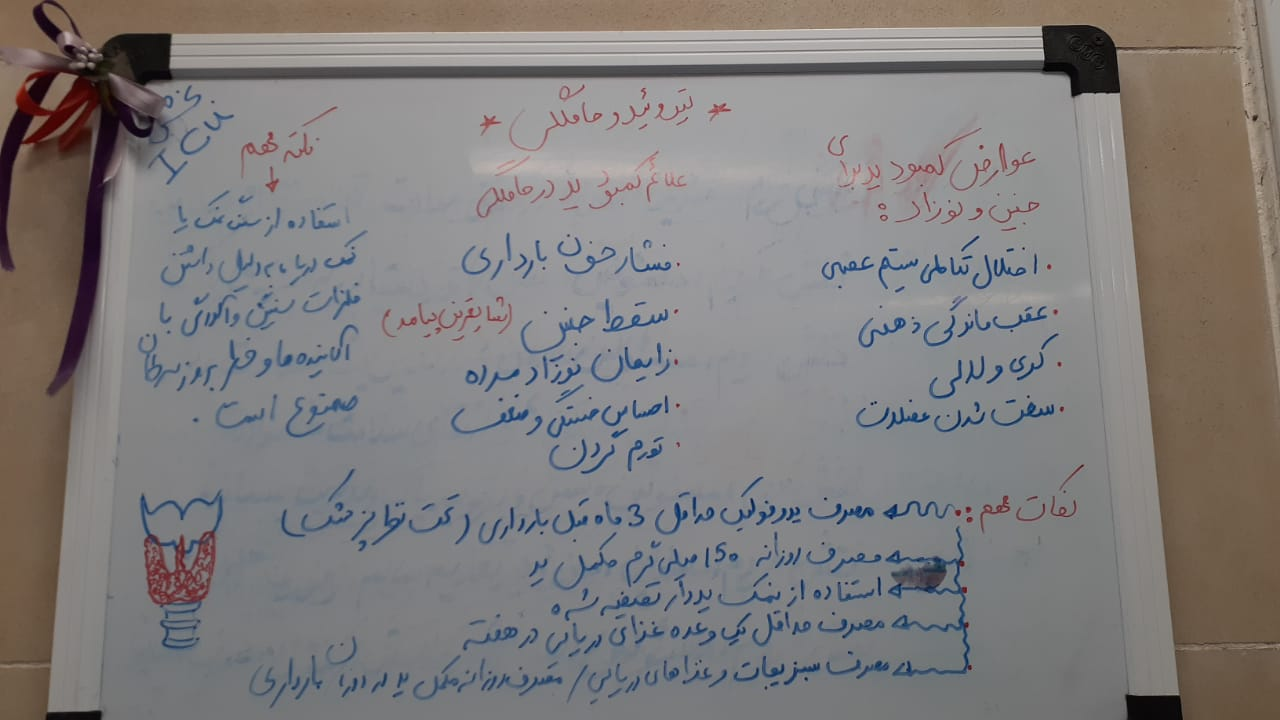 * تیروئید و حاملگی *
عوارض کمبود ید برای
جنین و نوزاد :
. اختلال تکاملی سیستم عصبی
. عقب ماندگی ذهنی
. کری و لالی
. سفت شدن عضلات
علائم کمبود ید در حاملگی
. فشار خون بارداری
. سقط جنین (شایعترین پیامد)
. زایمان نوزاد مرده
. احساس خستگی و ضعف
. تورم گردن
بخش
ICU
نکته مهم
استفاده از سنگ نمک یا
نمک دریا به دلیل داشتن
فلزات سنگین و آلودگی با
آلاینده ها و خطر بروز سرطان
ممنوع است .
نکات مهم :
مصرف یدوفولیک حداقل 3 ماه قبل بارداری (تحت نظر پزشک)
مصرف روزانه 150 میلی گرم مکمل ید
استفاده از نمک یددار تصفیه شده
مصرف حداقل یک وعده غذای دریایی در هفته
مصرف سبزیجات و غذاهای دریایی / مصرف روزانه مکمل ید در دوران بارداری